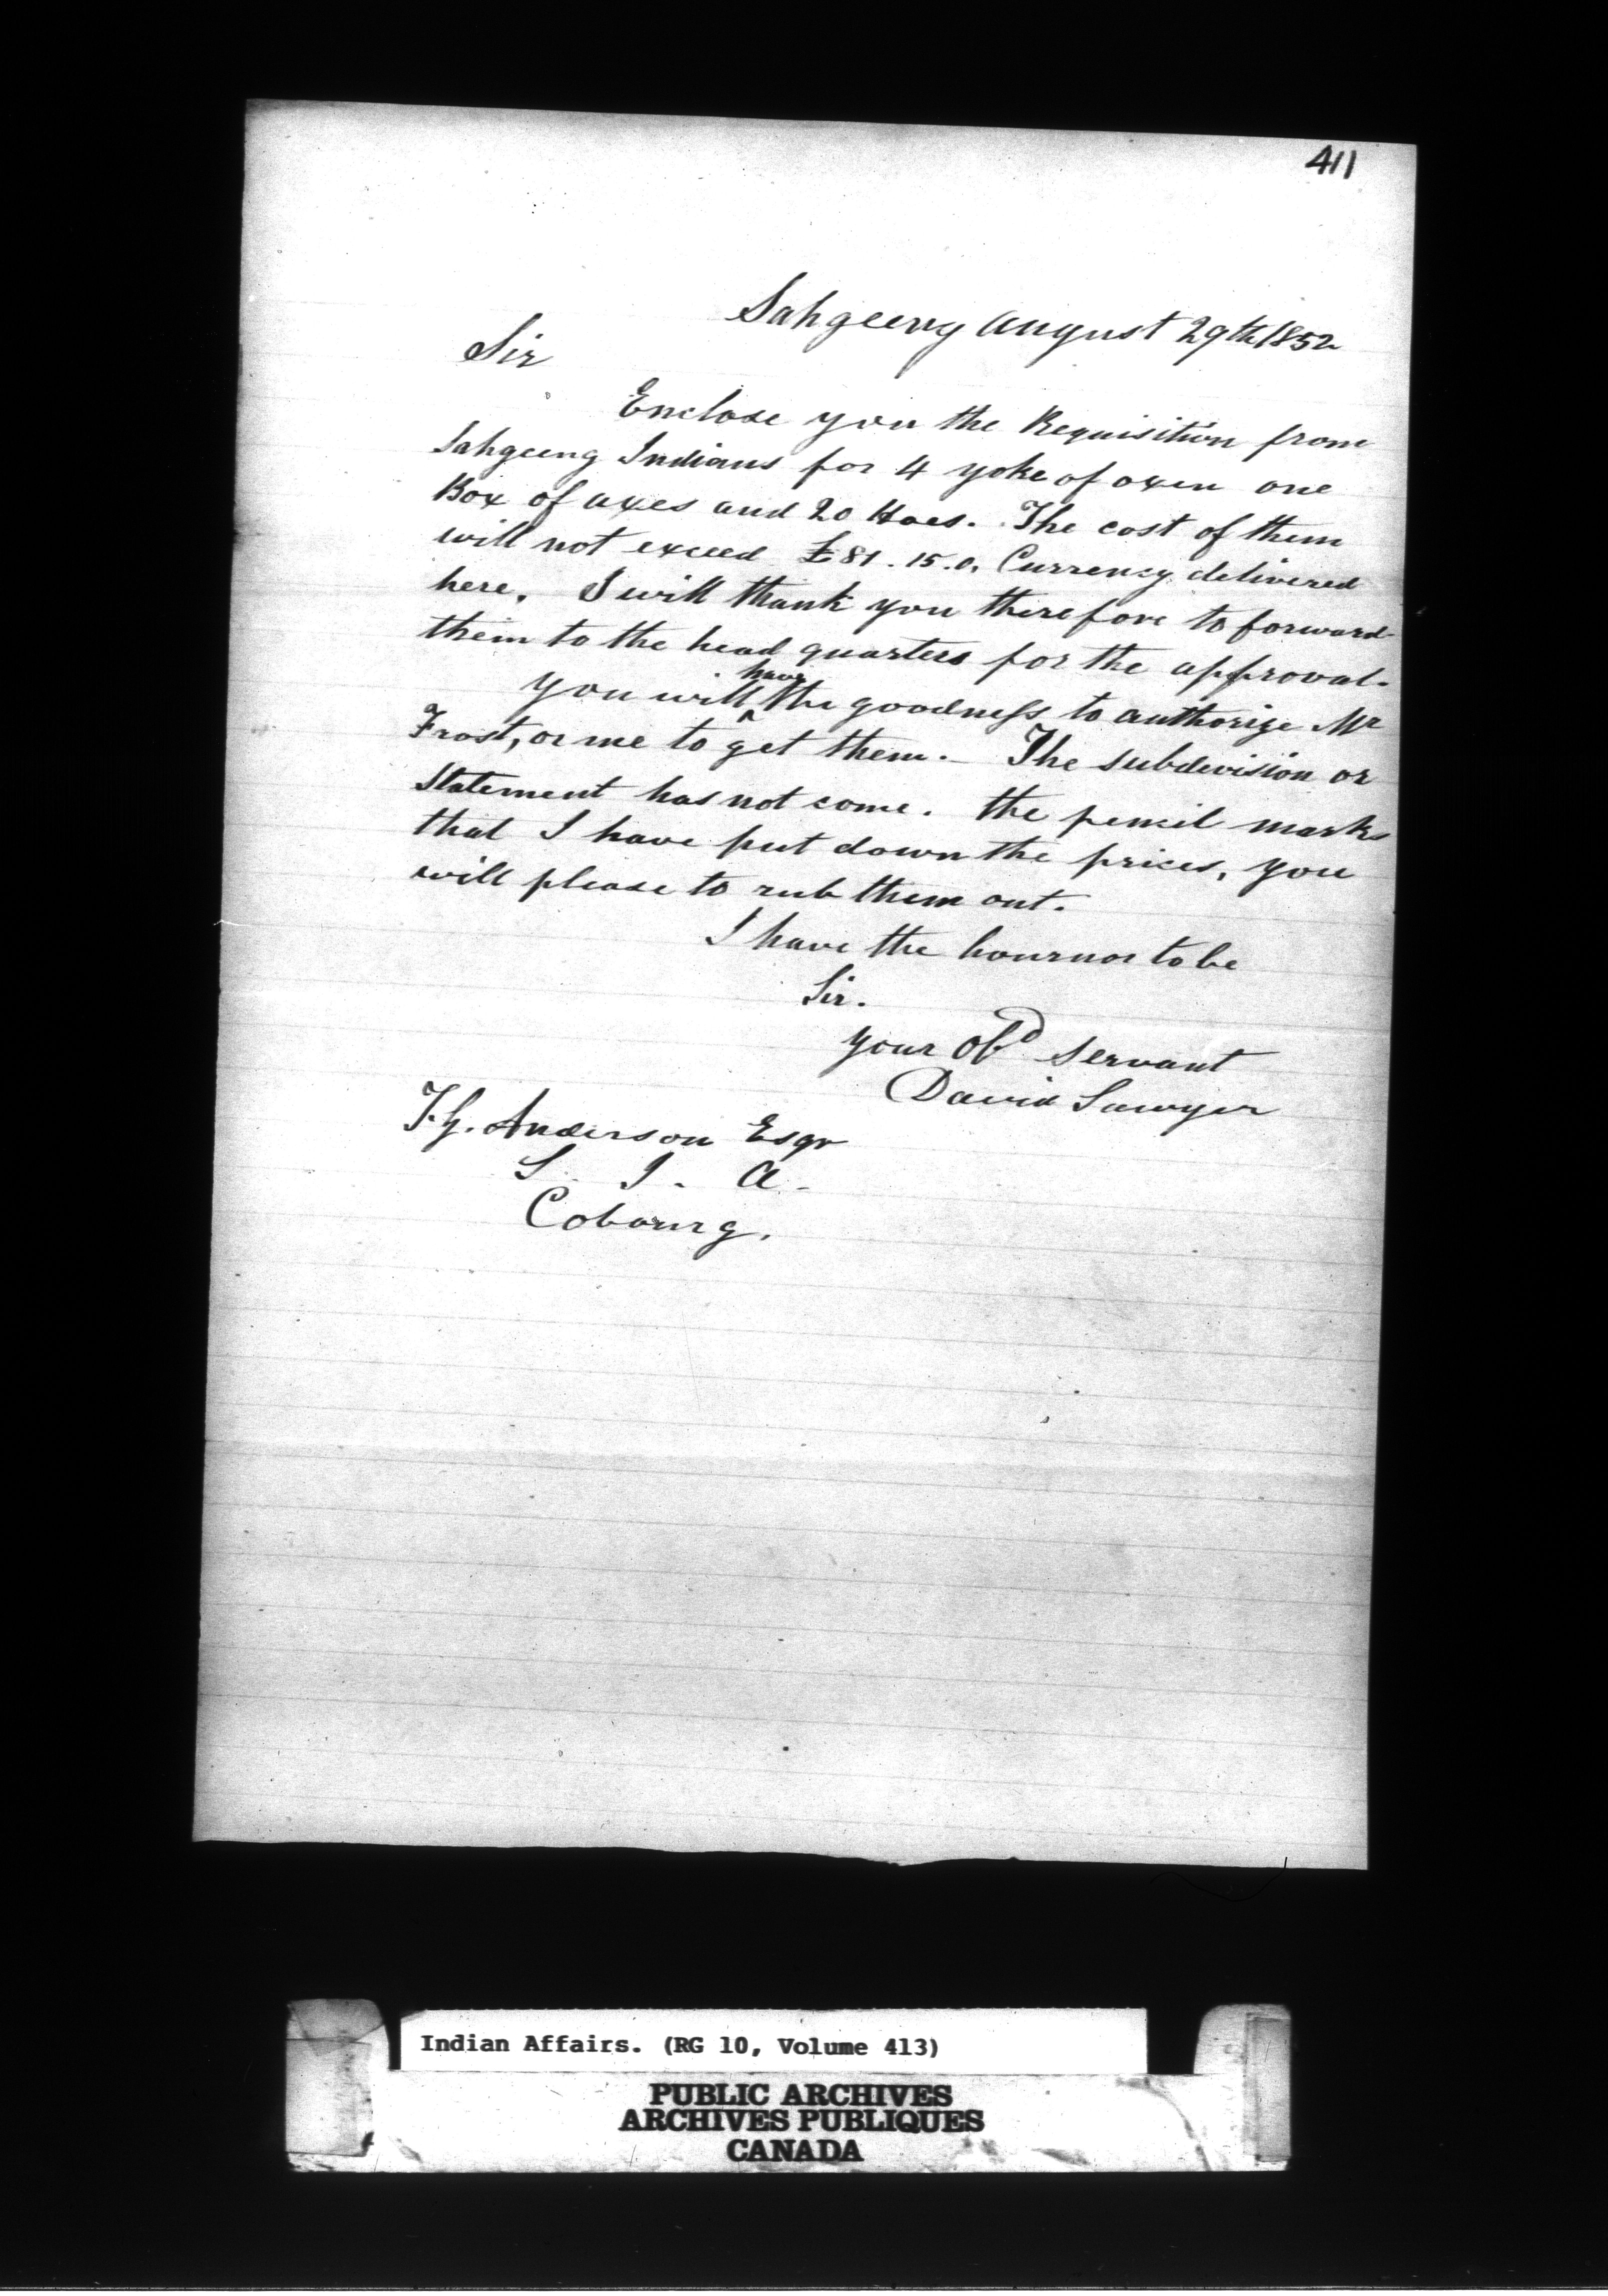 411
Sahgeeng August 29th 1852
Sir
Enclose you the Requisition from
Sahgeeng Indians for 4 yoke of oxen one
Box of axes and 20 Hoes. The cost of them
will not exceed £81.15.0. Currency delivered
here. I will thank you therefore to forward
them to the head quarters for the approval.
you will have the goodness to authorize Mr
Frost, or me to get them. — The subdevision or
Statement has not come. the pencil marks
that I have put down the prices, you
will please to rub them out.
I have the hournor to be
Sir.
your Obd servant
David Sawyer
T.G. Anderson Esqr
S. I. A.
Cobourg.
Indian Affairs. (RG 10, Volume 413)
PUBLIC ARCHIVES
ARCHIVES PUBLIQUES
CANADA